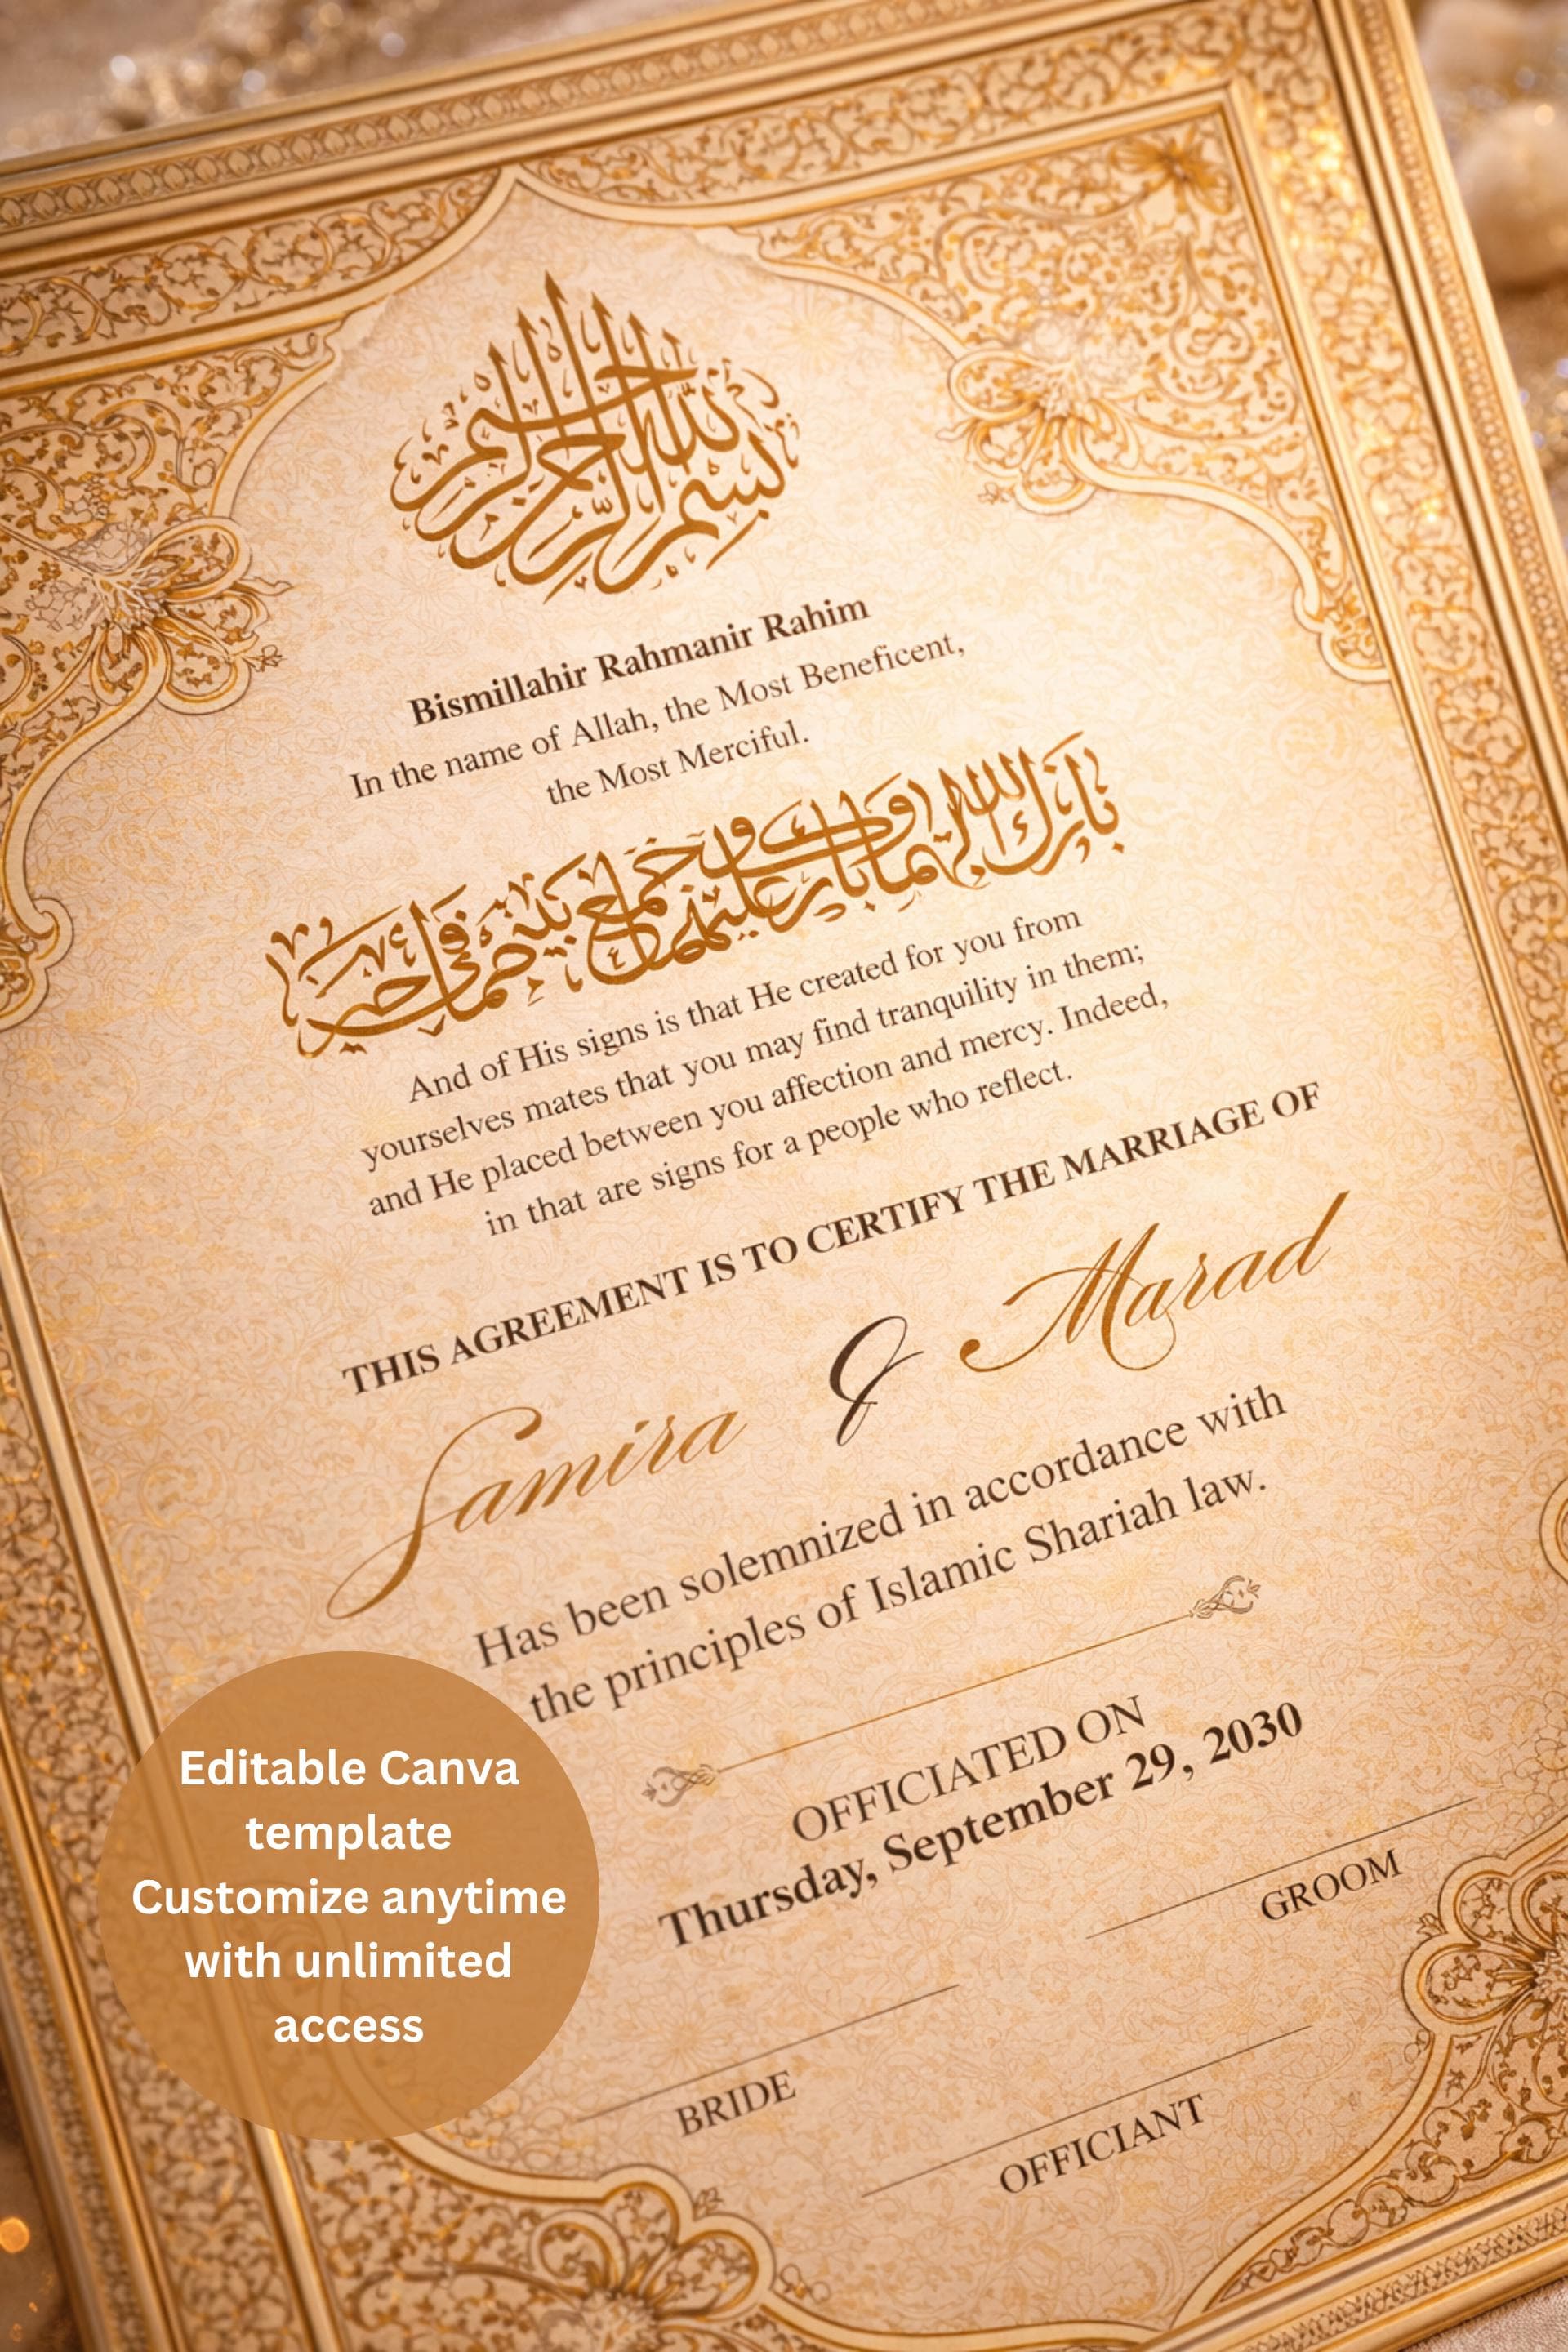 بسم الله الرحمن الرحيم
Bismillahir Rahmanir Rahim
In the name of Allah, the Most Beneficent,
the Most Merciful.
بارك الله لهما وبارك عليهما وجمع بينهما في خير
And of His signs is that He created for you from
yourselves mates that you may find tranquility in them;
and He placed between you affection and mercy. Indeed,
in that are signs for a people who reflect.
THIS AGREEMENT IS TO CERTIFY THE MARRIAGE OF
Samira & Marad
Has been solemnized in accordance with
the principles of Islamic Shariah law.
OFFICIATED ON
Thursday, September 29, 2030
BRIDE
GROOM
OFFICIANT
Editable Canva
template
Customize anytime
with unlimited
access